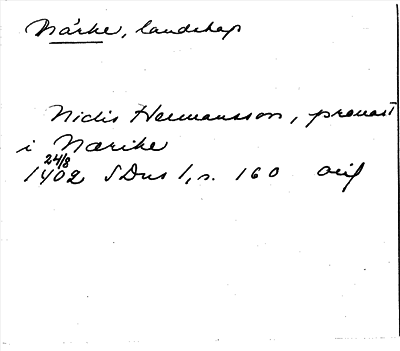 Närke, landskap
Niclis Hermansson, prouast
i Nærike
24/8
1402 SDns 1, s. 160 orig